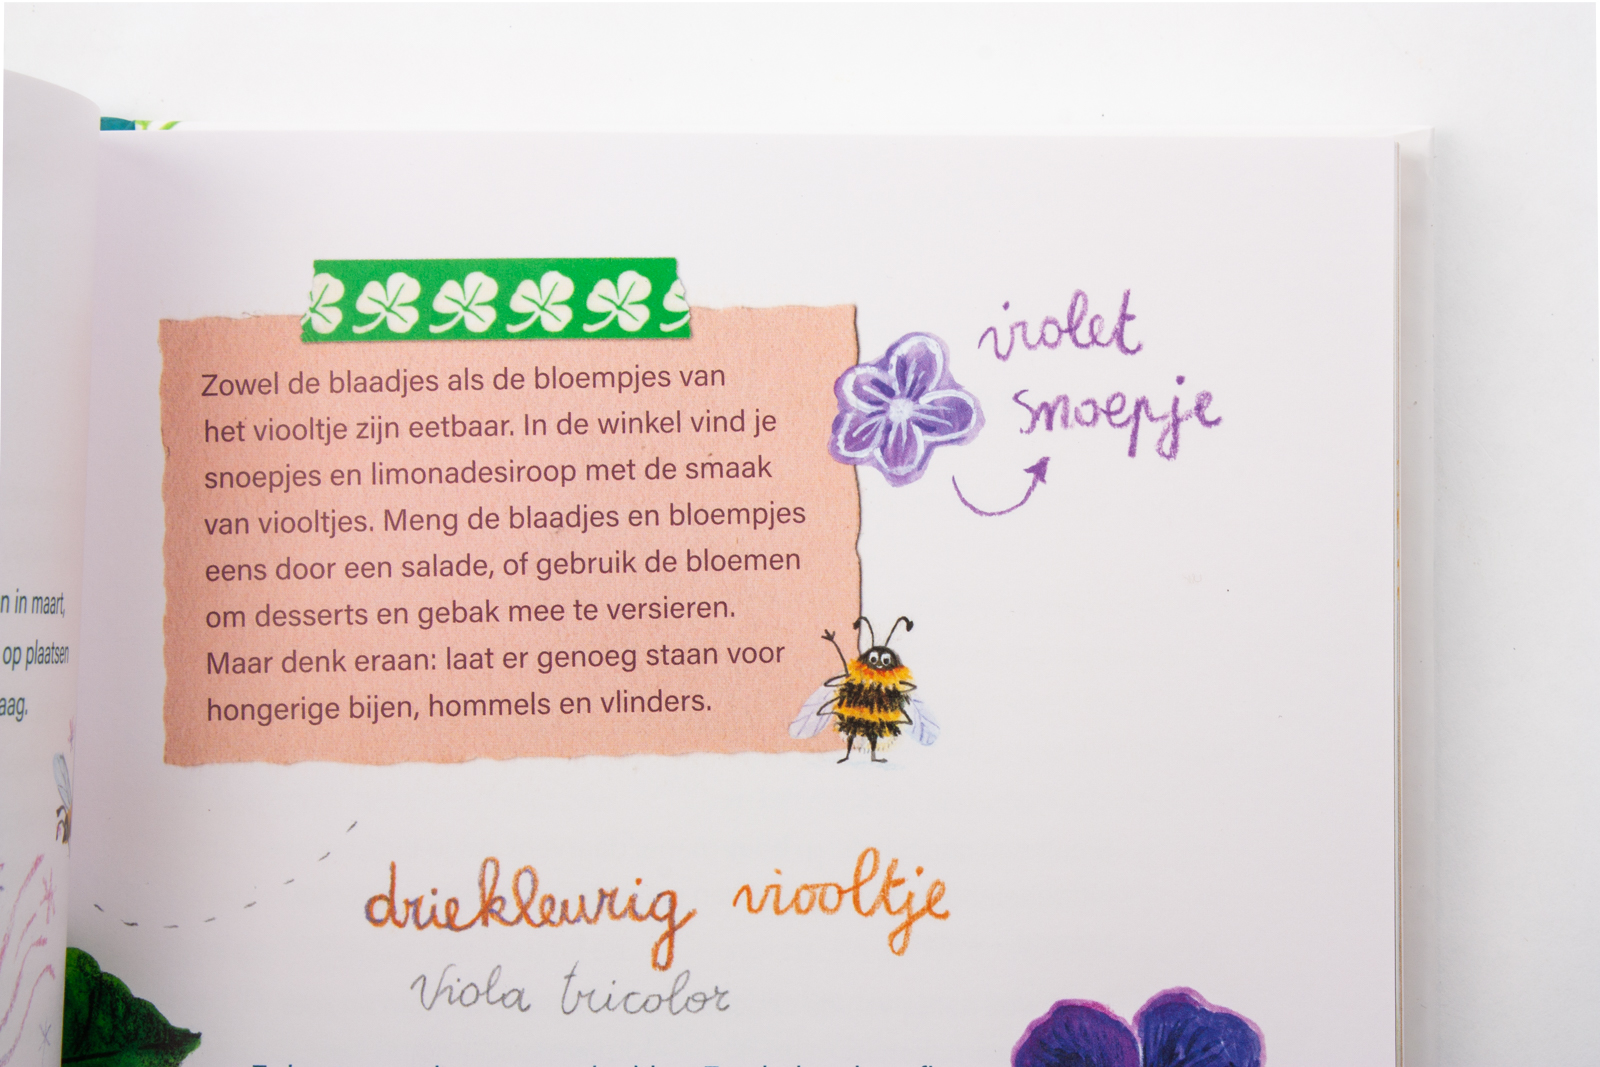 n in maart,
op plaatsen
aag.
Zowel de blaadjes als de bloempjes van
het viooltje zijn eetbaar. In de winkel vind je
snoepjes en limonadesiroop met de smaak
van viooltjes. Meng de blaadjes en bloempjes
eens door een salade, of gebruik de bloemen
om desserts en gebak mee te versieren.
Maar denk eraan: laat er genoeg staan voor
hongerige bijen, hommels en vlinders.
violet
snoepje
driekleurig viooltje
Viola tricolor